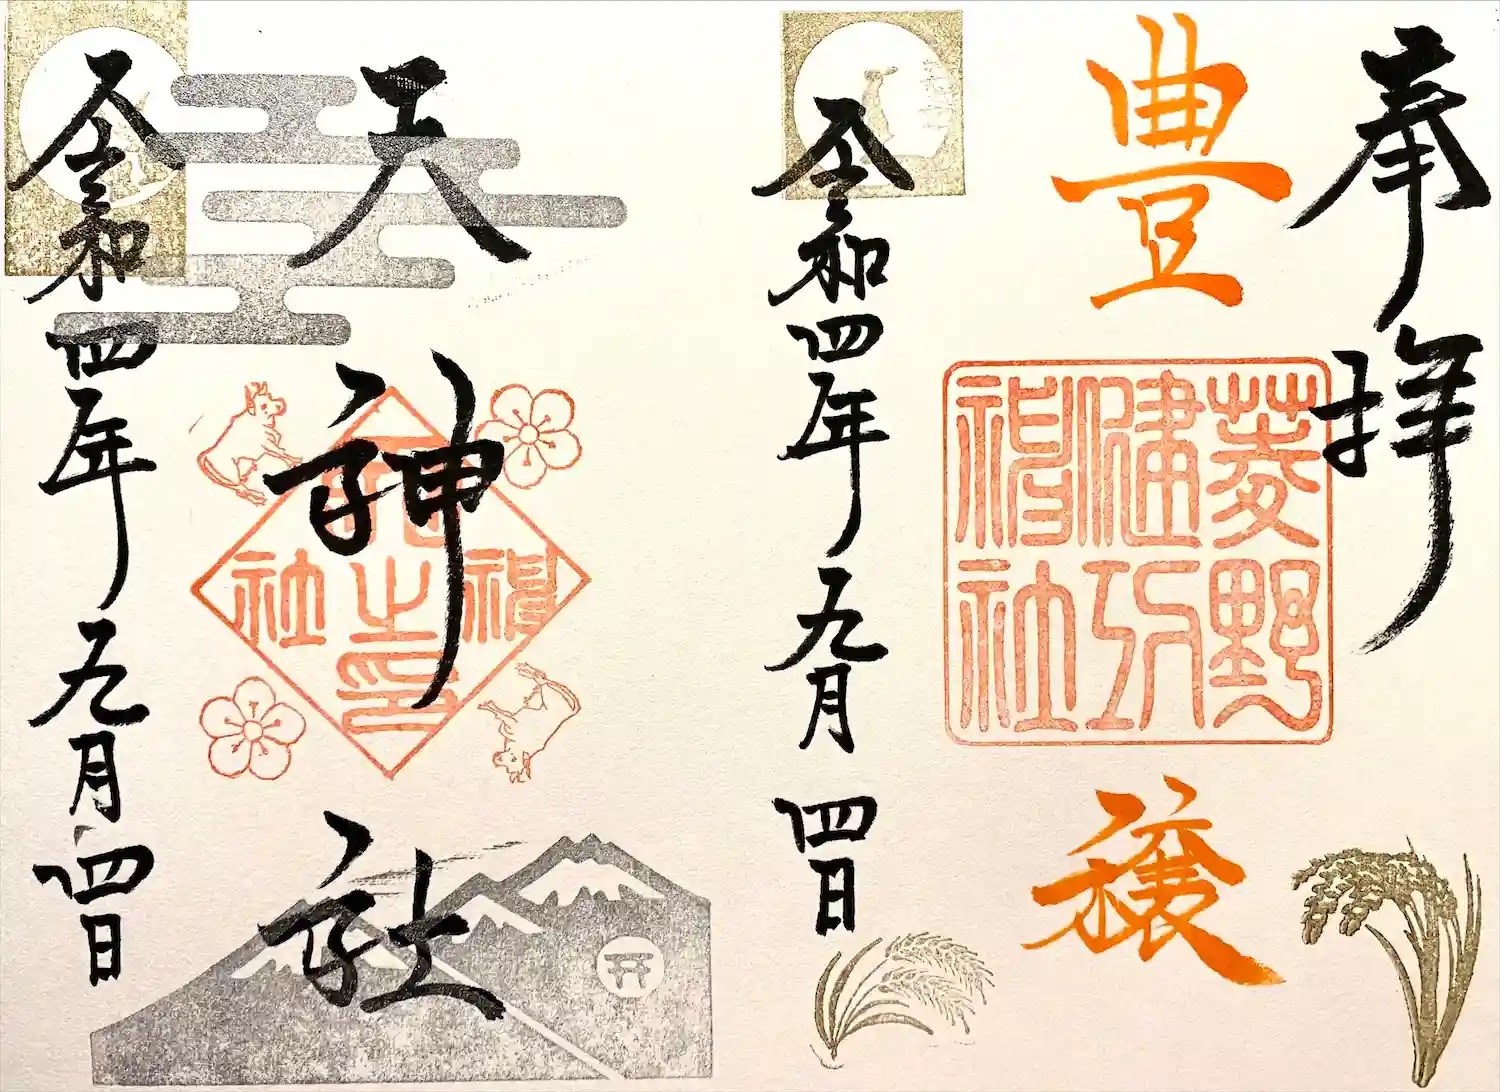 奉拝
豊穣
菱野
健功
神社
令和四年九月四日
天神社
神
社
之印
令和四年九月四日